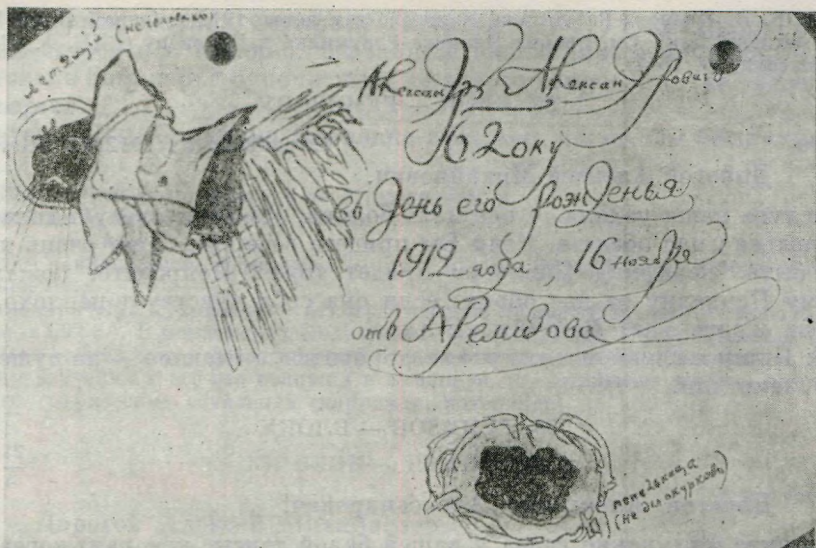 Александру Александровичу
Блоку
въ День его рожДенья
1912 года, 16 ноября
отъ А Ремизова
пепельница
(не для окурковъ)